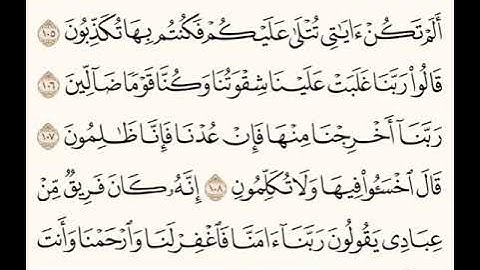 أَلَمْ تَكُنْ ءَايَٰتِي تُتْلَىٰ عَلَيْكُمْ فَكُنتُم بِهَا تُكَذِّبُونَ ١٠٥
قَالُوا۟ رَبَّنَا غَلَبَتْ عَلَيْنَا شِقْوَتُنَا وَكُنَّا قَوْمًا ضَآلِّينَ ١٠٦
رَبَّنَآ أَخْرِجْنَا مِنْهَا فَإِنْ عُدْنَا فَإِنَّا ظَٰلِمُونَ ١٠٧
قَالَ ٱخْسَـُٔوا۟ فِيهَا وَلَا تُكَلِّمُونِ ١٠٨ إِنَّهُۥ كَانَ فَرِيقٌ مِّنْ
عِبَادِي يَقُولُونَ رَبَّنَآ ءَامَنَّا فَٱغْفِرْ لَنَا وَٱرْحَمْنَا وَأَنتَ